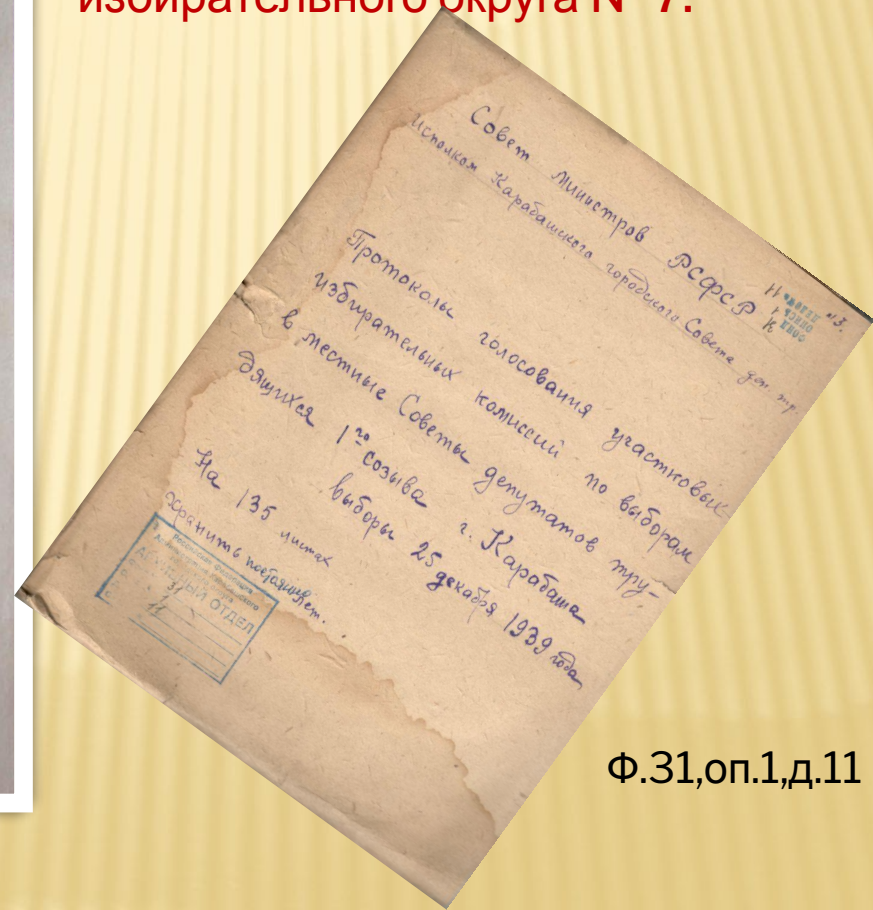 избирательного округа № 7.
Совет Министров РСФСР
Исполком Карабашского городского Совета деп. тр.
Протоколы голосования участковых
избирательных комиссий по выборам
в местные Советы депутатов тру-
дящихся 1го созыва г. Карабаша
выборы 25 декабря 1939 года
На 135 листах
Хранить постоянно
АРХИВНЫЙ ОТДЕЛ
31
1
11
Ф.31,оп.1,д.11